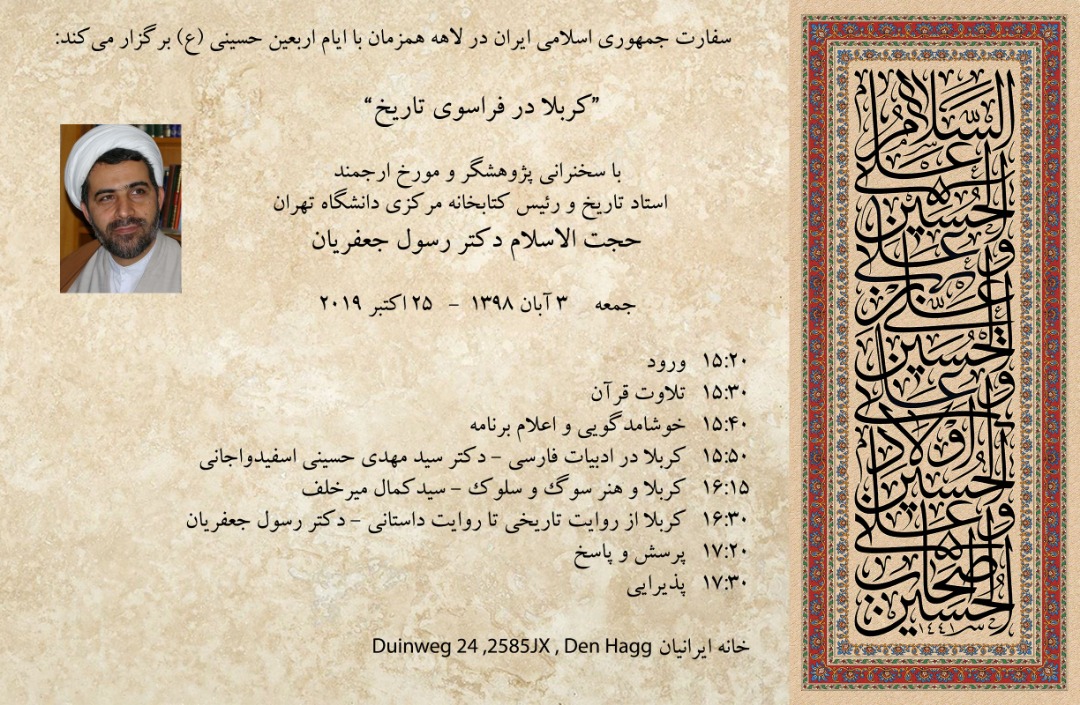 سفارت جمهوری اسلامی ایران در لاهه همزمان با ایام اربعین حسینی (ع) برگزار می‌کند:
”کربلا در فراسوی تاریخ“
با سخنرانی پژوهشگر و مورخ ارجمند
استاد تاریخ و رئیس کتابخانه مرکزی دانشگاه تهران
حجت الاسلام دکتر رسول جعفریان
جمعه ۳ آبان ۱۳۹۸ – ۲۵ اکتبر ۲۰۱۹
۱۵:۲۰ ورود
۱۵:۳۰ تلاوت قرآن
۱۵:۴۰ خوشامدگویی و اعلام برنامه
۱۵:۵۰ کربلا در ادبیات فارسی – دکتر سید مهدی حسینی اسفیدواجانی
۱۶:۱۵ کربلا و هنر سوگ و سلوک – سیدکمال میرخلف
۱۶:۳۰ کربلا از روایت تاریخی تا روایت داستانی – دکتر رسول جعفریان
۱۷:۲۰ پرسش و پاسخ
۱۷:۳۰ پذیرایی
خانه ایرانیان Duinweg 24 ,2585JX , Den Hagg
السَّلامُ
عَلَى
الحُسَين
وَعَلى
عَلِيِّ بنِ
الحُسَين
وَعَلى
أَولادِ
الحُسَين
وَعَلى
أَصحابِ
الحُسَين
١٤٤١